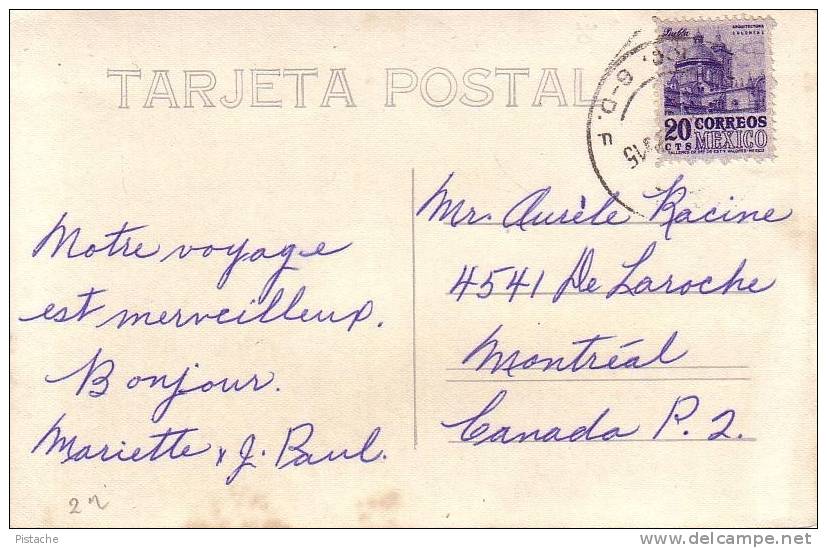 TARJETA POSTAL
Puebla
ARQUITECTURA
COLONIAL
20 CORREOS
CTS MEXICO
D. F.
15
Notre voyage
est merveilleux.
Bonjour.
Mariette & J. Paul.
Mr. Aurèle Racine
4541 De Laroche
Montréal
Canada P. 2.
Pistache
www.delcampe.net